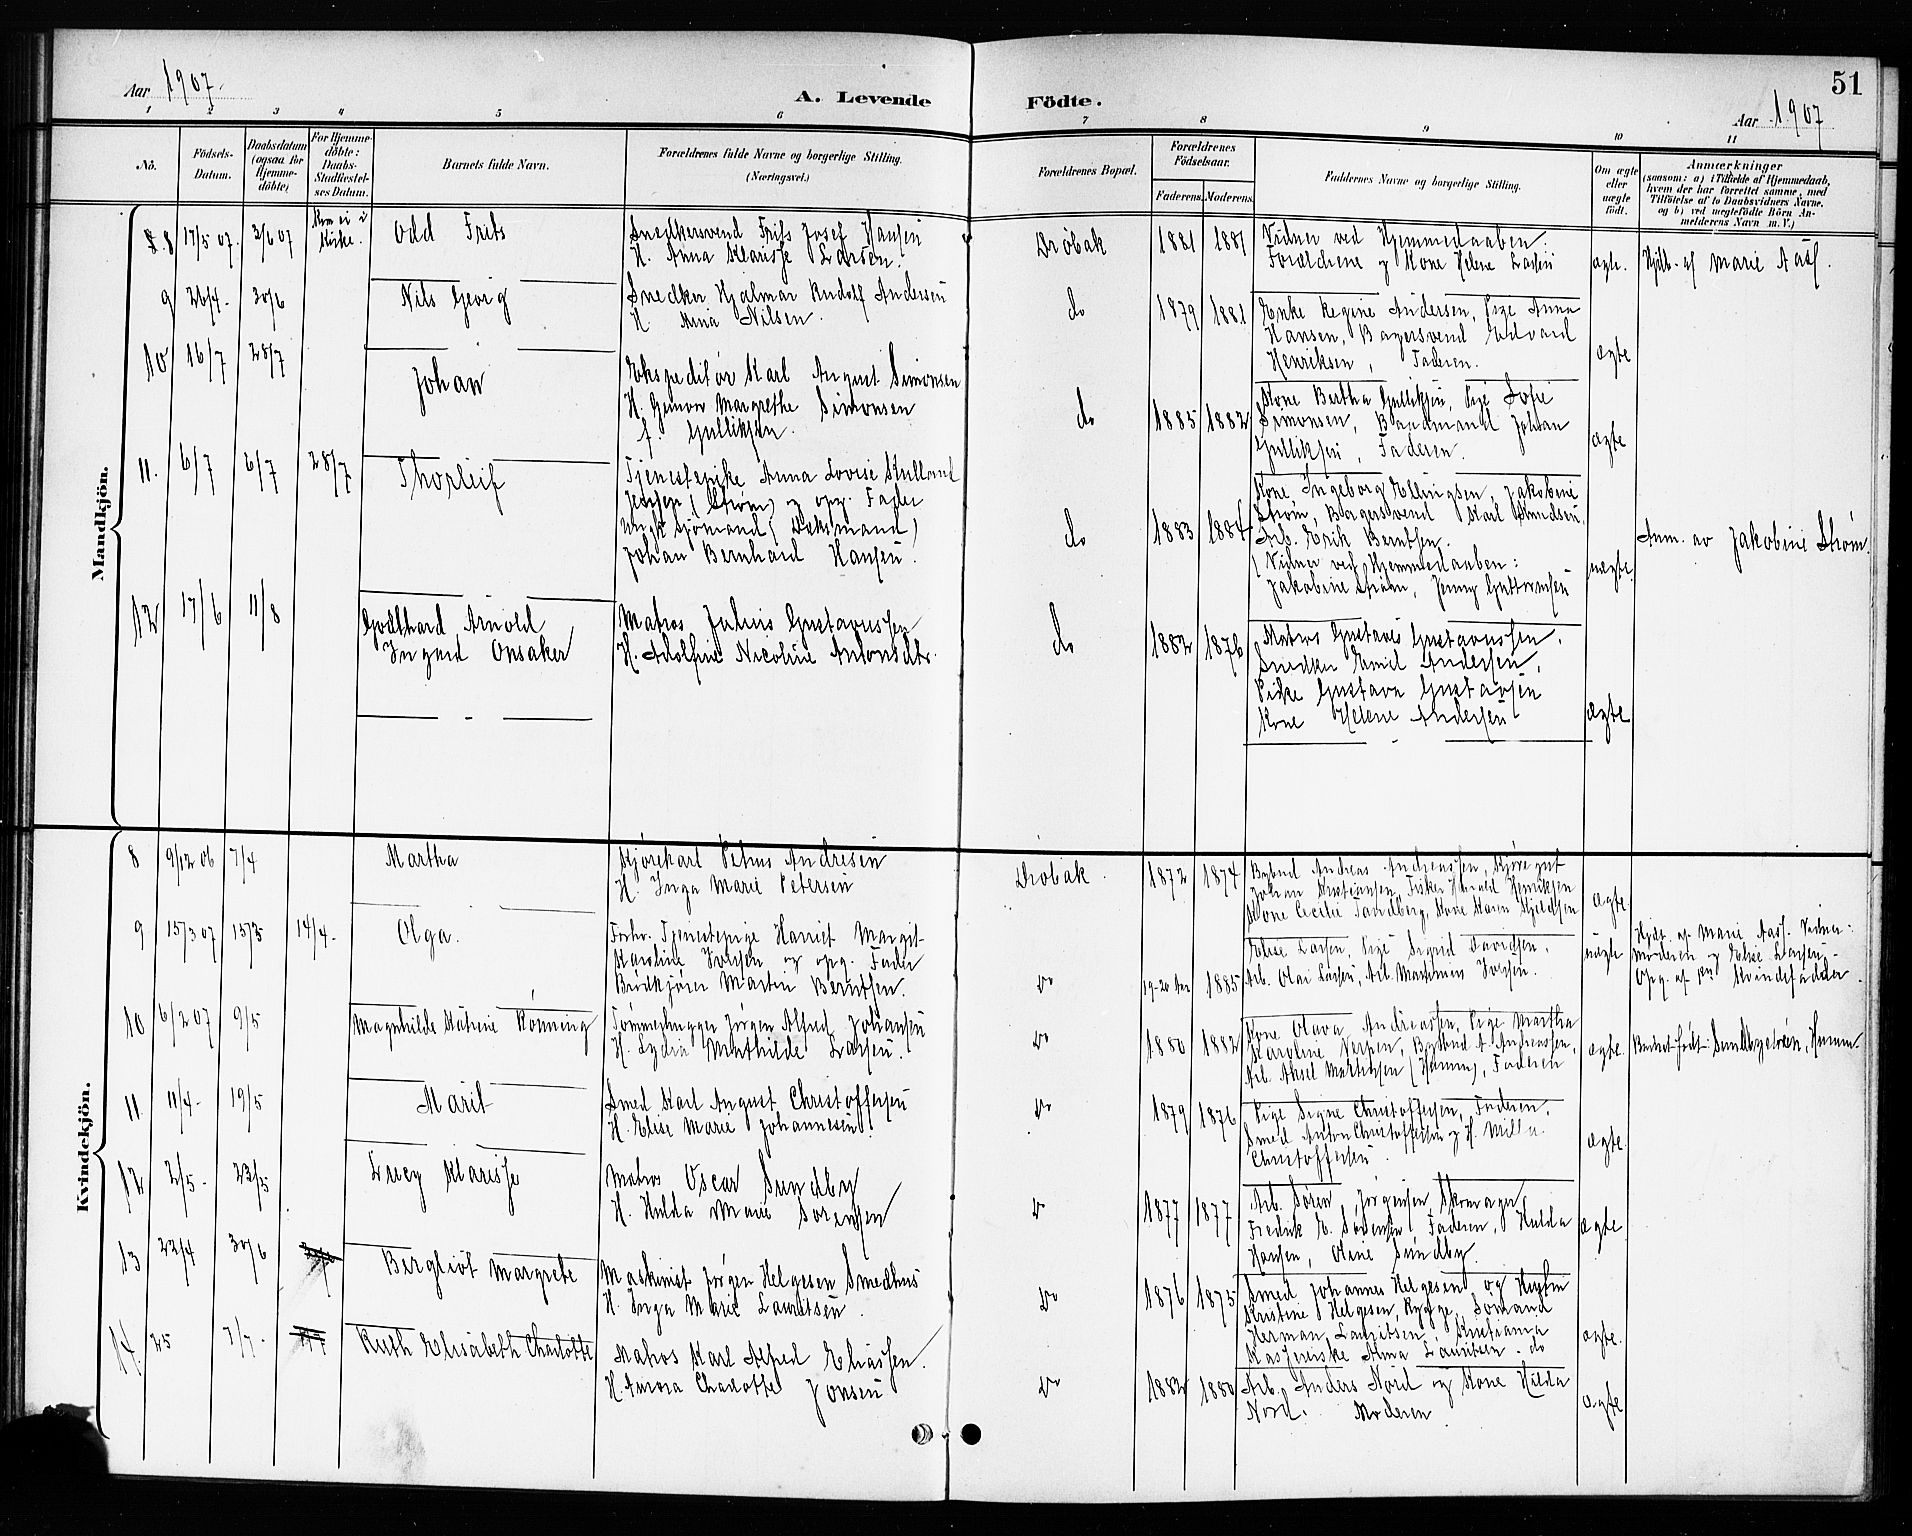 Aar 1907.
A. Levende Födte.
51
Aar 1907
1 2 3 4 5 6 7 8 9 10 11
No.
Födsels-Datum.
Daabsdatum (ogsaa for Hjemme-döbte)
For Hjemme-döbte: Daabs-Stadfæstel-ses Datum.
Barnets fulde Navn.
Forældrenes fulde Navne og borgerlige Stilling.
(Næringsvei.)
Forældrenes Bopæl.
Forældrenes Födselsaar.
Faderens. Moderens.
Faddernes Navne og borgerlige Stilling.
Om ægte eller uægte födt.
Anmærkninger
(saasom: a) i Tilfælde af Hjemmedaab,
hvem der har forrettet samme, med
Tilföielse af to Daabsvidners Navne,
og b) ved uegtefödte Börn An-
melderens Navn m. V.)
Mandkjön.
8 17/5 07. 3/6 07
Kom ei i Kirke.
Odd Frits
Snedkersvend Frits Josef Hansen
H. Anna Klarisse Larsen.
Drøbak 1881 1881
Vidner ved Hjemmedaaben:
Forældrene og Kone Helene Larsen
ægte.
Hjdb. af Marie Aas.
9 26/4- 30/6
Nils Georg
Snedker Hjalmar Rudolf Andersen
H. Mina Nilsen.
do 1879 1881
Enke Regine Andersen, Pige Anna
Hansen, Bagersvend Edvard
Henriksen, Faderen.
ægte
10 16/7 28/7
Johan
Ekspeditør Karl August Simonsen
H. Gunvor Margrethe Simonsen
f. Gulliksen.
do 1885 1882
Kone Bertha Gulliksen, Pige Sofie
Simonsen, Baadmand Johan
Gulliksen, Faderen.
ægte
11. 6/7 6/7 28/7
Thorleif
Tjenestepike Anna Lovise
Jensen (Strøm) og opg. Fader
Ungk. sjömand
Johan Bernhard Hansen.
do 1883 1884
Kone Ingeborg Ellingsen, Jakobine
Strøm, Bagersvend Karl
Arb. Erik Berntsen.
(Vidner ved Hjemmedaaben:
Jakobine Strøm, Jenny Guttormsen
uægte.
Anm. av Jakobine Strøm.
12 17/6 11/8
Godthard Arnold
Ingvard Onsaker
Matros Julius Gustavussen
H. Adolfine Nicoline Antonsdtr.
do 1882 1876
Matros Gustavus Gustavussen,
Snedker Emil Andersen,
Pike Gustava Gustavsen
Kone Helene Andersen
ægte
Kvindekjön.
8 9/12 06 7/4
Martha
Kjørekarl Petrus Andresen
H. Inga Marie Petersen
Drøbak. 1872 1874
Bybud Andreas Andreassen, Kjøregut
Johan Kristiansen, Fisker Harald Henriksen
Kone Cecilie Sandberg, Kone Karen Kjeldsen
ægte.
9 15/3 07 15/3 14/4-
Olga.
Forhv. Tjenestepige Harriet Margit
Karoline Iversen og opg. Fader
Brödkjører Martin Berntsen.
Do 19-20 Aar 1885
Elise Larsen, Pige Sigrid Davidsen,
Arb. Olai Larsen, Arb. Marthinius Iversen.
uægte
Hjdt. af Marie Aas. Vidner:
Moderen og Elise Larsen.
Opg. af en Kvindefadder.
10 6/2 07 9/5
Magnhilde Katrine Rönning
Tömmerhugger Jørgen Alfred Johansen
H. Lydia Mathilde Larsen.
Do 1880 1882
Kone Olava Andreassen, Pige Martha
Karoline Nersen, Bybud A. Andreassen,
Arb. Aksel Martinsen (Hurum), Faderen
ægte.
Barnet födt Sundbyeiéen, Hurum
11 11/4- 19/5
Marit
Smed Karl August Christoffersen
H. Elise Marie Johannesen.
Do 1879 1876
Pige Signe Christoffersen, Faderen,
Smed Anton Christoffersen og H. Milla
Christoffersen.
ægte.
12 2/5- 23/5
Lucy Klarisse
Matros Oscar Sundby
H. Hulda Marie Sörensen
Do 1877 1877
Arb. Sören Jørgensen, Skomager
Fredrik E. Sørensen, Faderen, Hulda
Hansen, Oline Sundby.
ægte.
13 22/4 30/6
Bergliot Margrete
Maskinist Jørgen Helgesen Smedhus
H. Inga Marie Lauritsen.
Do 1876 1875
Smed Johannes Helgesen og Hustru
Kristine Helgesen, Rygge, Sømand
Herman Lauritsen, Kristiania
Kassererske Anna Lauritsen. do
ægte.
14. 25 7/7-
Ruth Elisabeth Charlotte
Matros Karl Alfred Eliassen.
H. Aurora Charlotte Jonsen
Do 1882 1880
Arb. Anders Nord og Kone Hilda
Nord. Moderen.
ægte